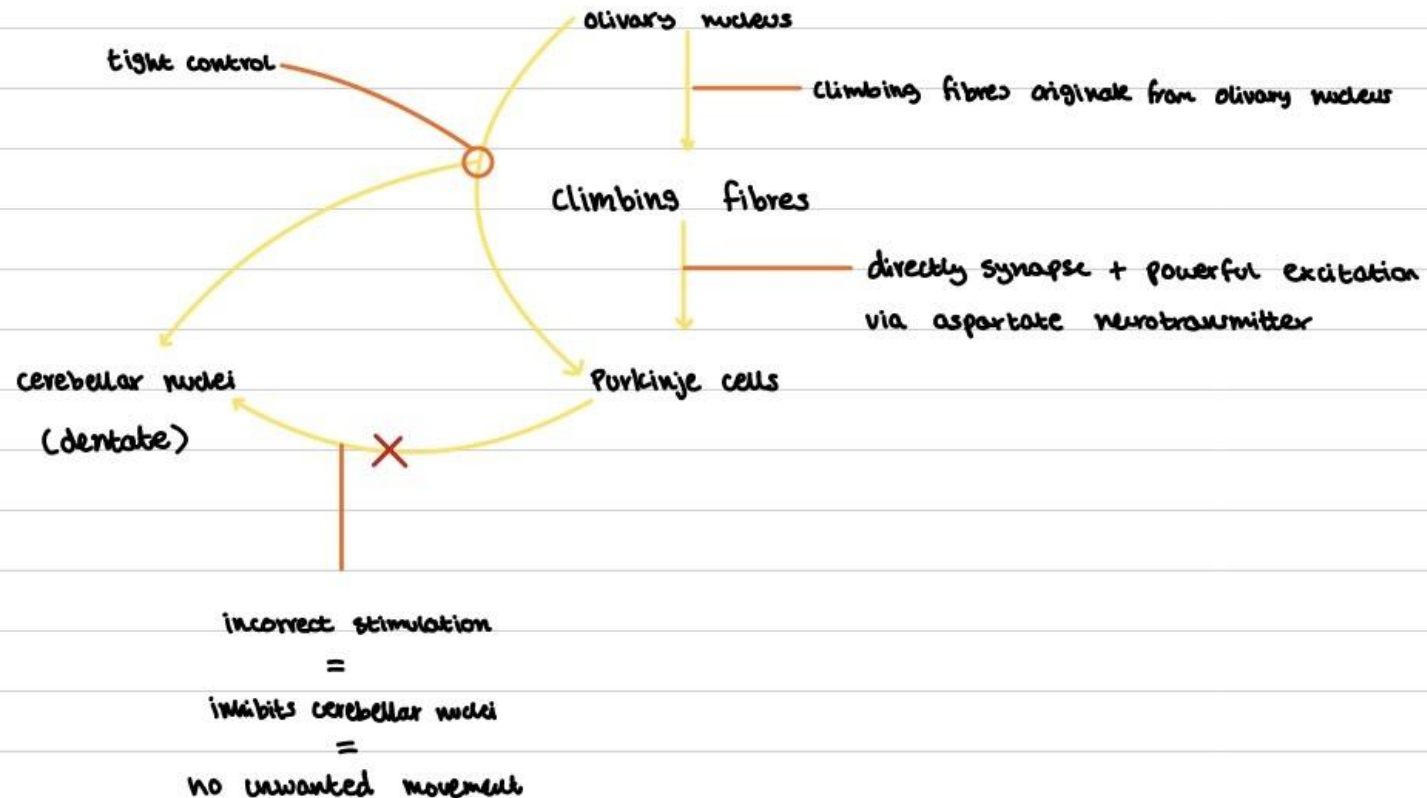 olivary nucleus
tight control
Climbing fibres originate from olivary nucleus
Climbing fibres
directly synapse + powerful excitation
via aspartate neurotransmitter
cerebellar nuclei
(dentate)
Purkinje cells
incorrect stimulation
=
inhibits cerebellar nuclei
=
no unwanted movement